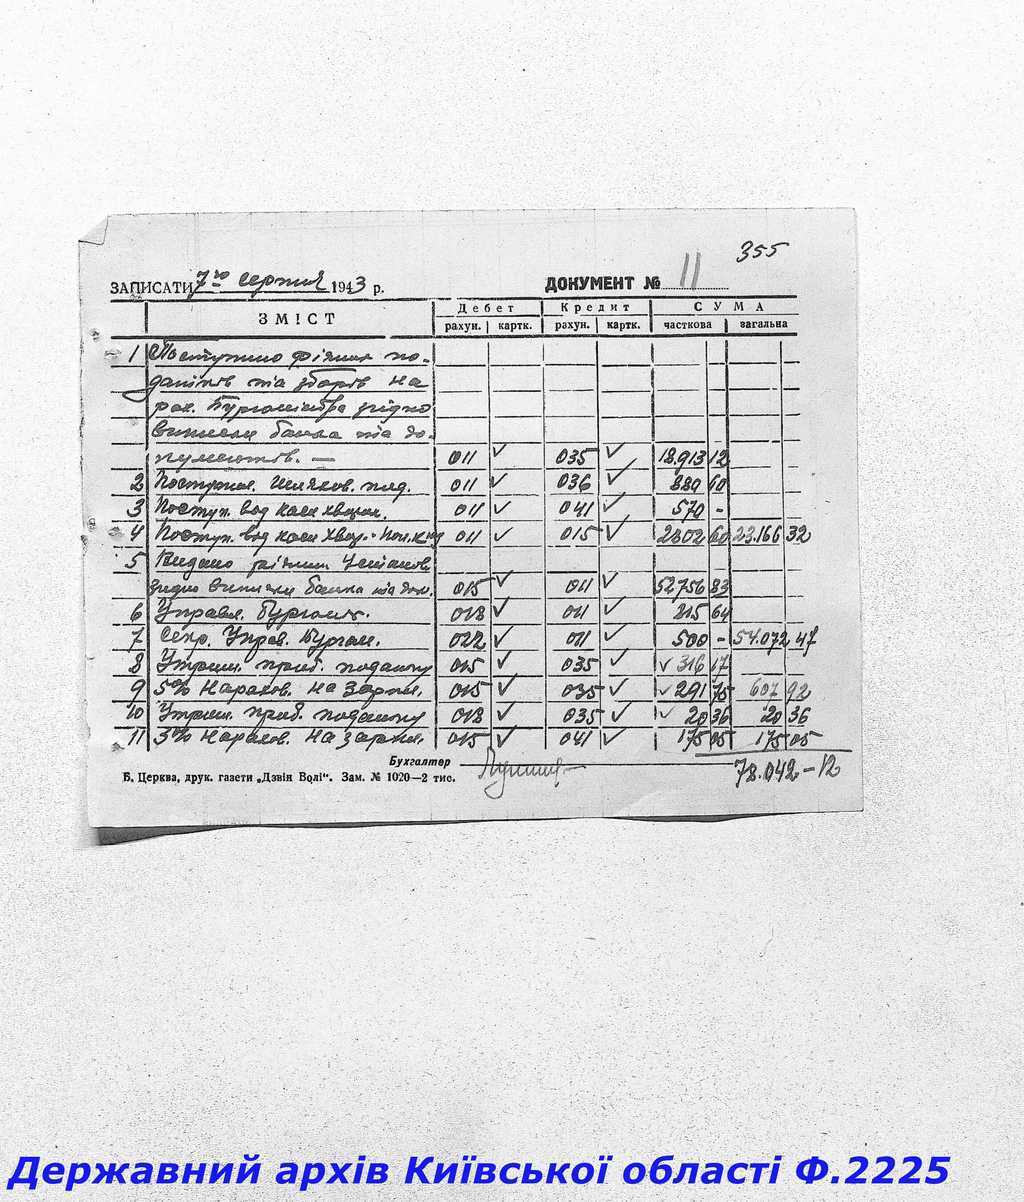 355
ЗАПИСАТИ 7го серпня 1943 р. ДОКУМЕНТ № 11
ЗМІСТ Дебет Кредит СУМА
рахун. картк. рахун. картк. часткова загальна
1 Поступило різних по-
датків та зборів на
рах. Бургомістра згідно
виписки банка та до-
кументів. — 011 ✓ 035 ✓ 18.913 12
2 Поступил. Шляхов. под. 011 ✓ 036 ✓ 880 60
3 Поступ. вод каси хворих. 011 ✓ 041 ✓ 570 -
4 Поступ. вод каси хвор. 011 ✓ 015 ✓ 2802 60 23.166 32
5 Видано різним Установ.
згідно виписки банка та док. 015 ✓ 011 ✓ 52756 83
6 Управл. Бургоміст. 018 ✓ 011 ✓ 815 64
7 Секр. Управ. Бургом. 022 ✓ 011 ✓ 500 - 54.072 47
8 Утрим. приб. податку 015 ✓ 035 ✓ ✓ 316 17
9 5% Нарахов. на Зарпл. 015 ✓ 035 ✓ ✓ 291 75 607 92
10 Утрим. приб. податку 018 ✓ 035 ✓ ✓ 20 36 20 36
11 3% Нарахов. на зарпл. 015 ✓ 041 ✓ 175 05 175 05
Бухгалтер 78.042-12
Б. Церква, друк. газети „Дзвін Волі“. Зам. № 1020—2 тис.
Державний архів Київської області Ф.2225